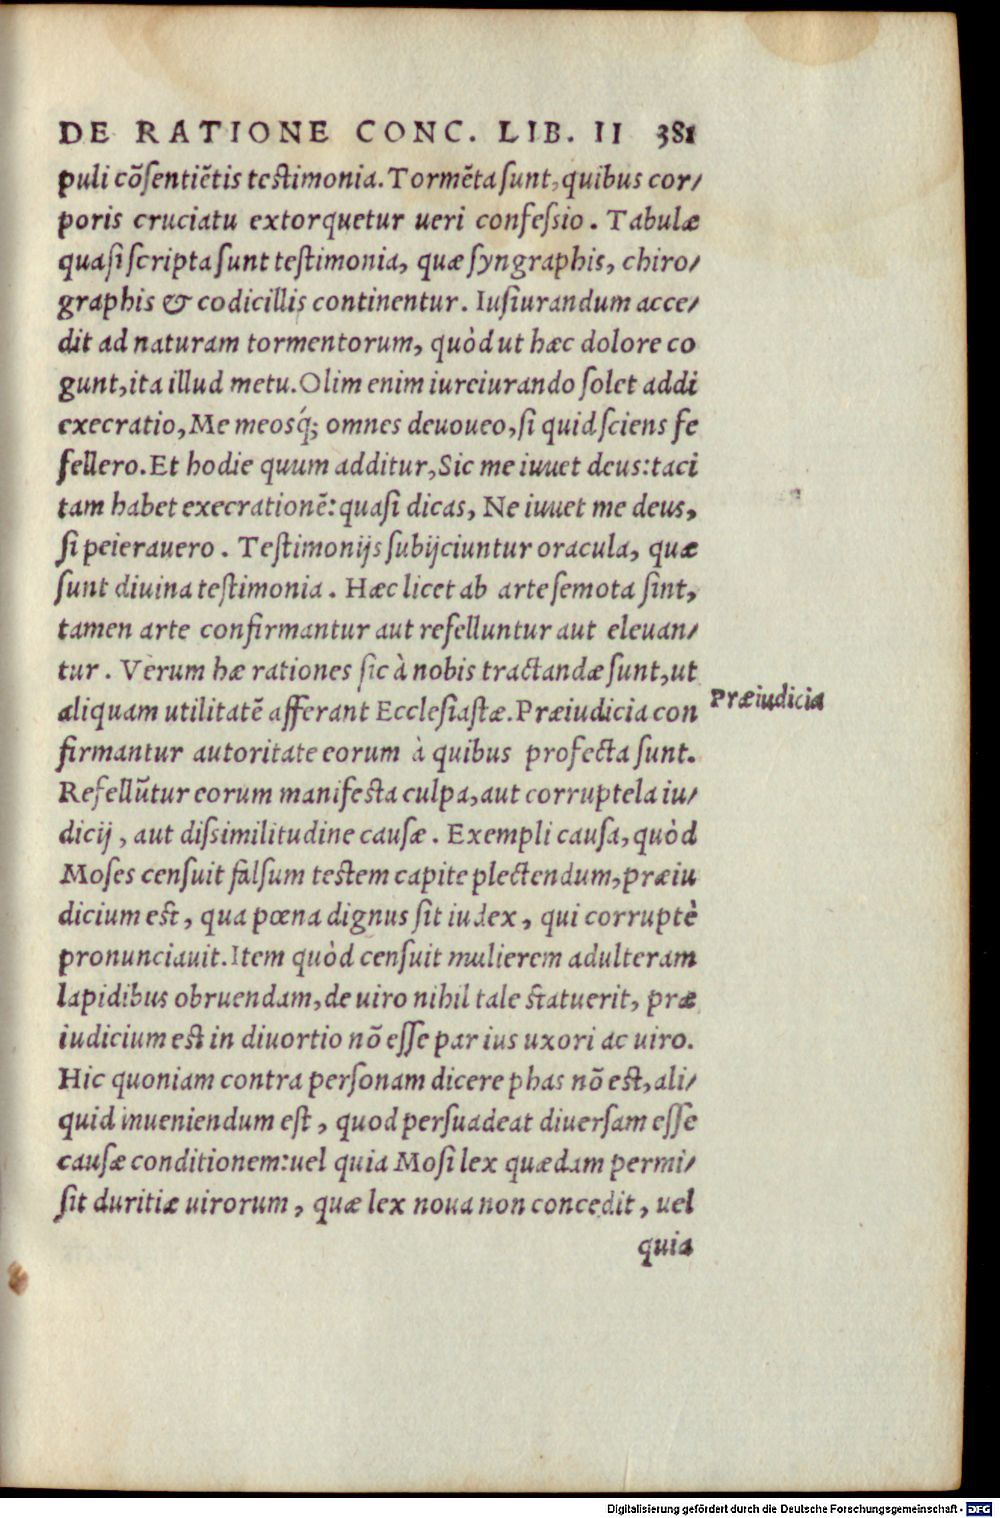 DE RATIONE CONC. LIB. II 381
puli cõsentiẽtis testimonia. Tormẽta sunt, quibus cor/
poris cruciatu extorquetur ueri confessio. Tabulæ
quasi scripta sunt testimonia, quæ syngraphis, chiro/
graphis & codicillis continentur. Iusiurandum acce/
dit ad naturam tormentorum, quòd ut hæc dolore co
gunt, ita illud metu. Olim enim iureiurando solet addi
execratio, Me meosq́; omnes deuoueo, si quid sciens fe
fellero. Et hodie quum additur, Sic me iuuet deus: taci
tam habet execrationẽ: quasi dicas, Ne iuuet me deus,
si peierauero. Testimonijs subijciuntur oracula, quæ
sunt diuina testimonia. Hæc licet ab arte semota sint,
tamen arte confirmantur aut refelluntur aut eleuan/
tur. Verum hæ rationes sic à nobis tractandæ sunt, ut
aliquam utilitatẽ afferant Ecclesiastæ. Præiudicia con
Præiudicia
firmantur autoritate eorum à quibus profecta sunt.
Refellũtur eorum manifesta culpa, aut corruptela iu/
dicij, aut dissimilitudine causæ. Exempli causa, quòd
Moses censuit falsum testem capite plectendum, præiu
dicium est, qua pœna dignus sit iudex, qui corruptè
pronunciauit. Item quòd censuit mulierem adulteram
lapidibus obruendam, de uiro nihil tale statuerit, præ
iudicium est in diuortio nõ esse par ius uxori ac uiro.
Hic quoniam contra personam dicere phas nõ est, ali/
quid inueniendum est, quod persuadeat diuersam esse
causæ conditionem: uel quia Mosi lex quædam permi/
sit duritiæ uirorum, quæ lex noua non concedit, uel
quia
Digitalisierung gefördert durch die Deutsche Forschungsgemeinschaft - DFG